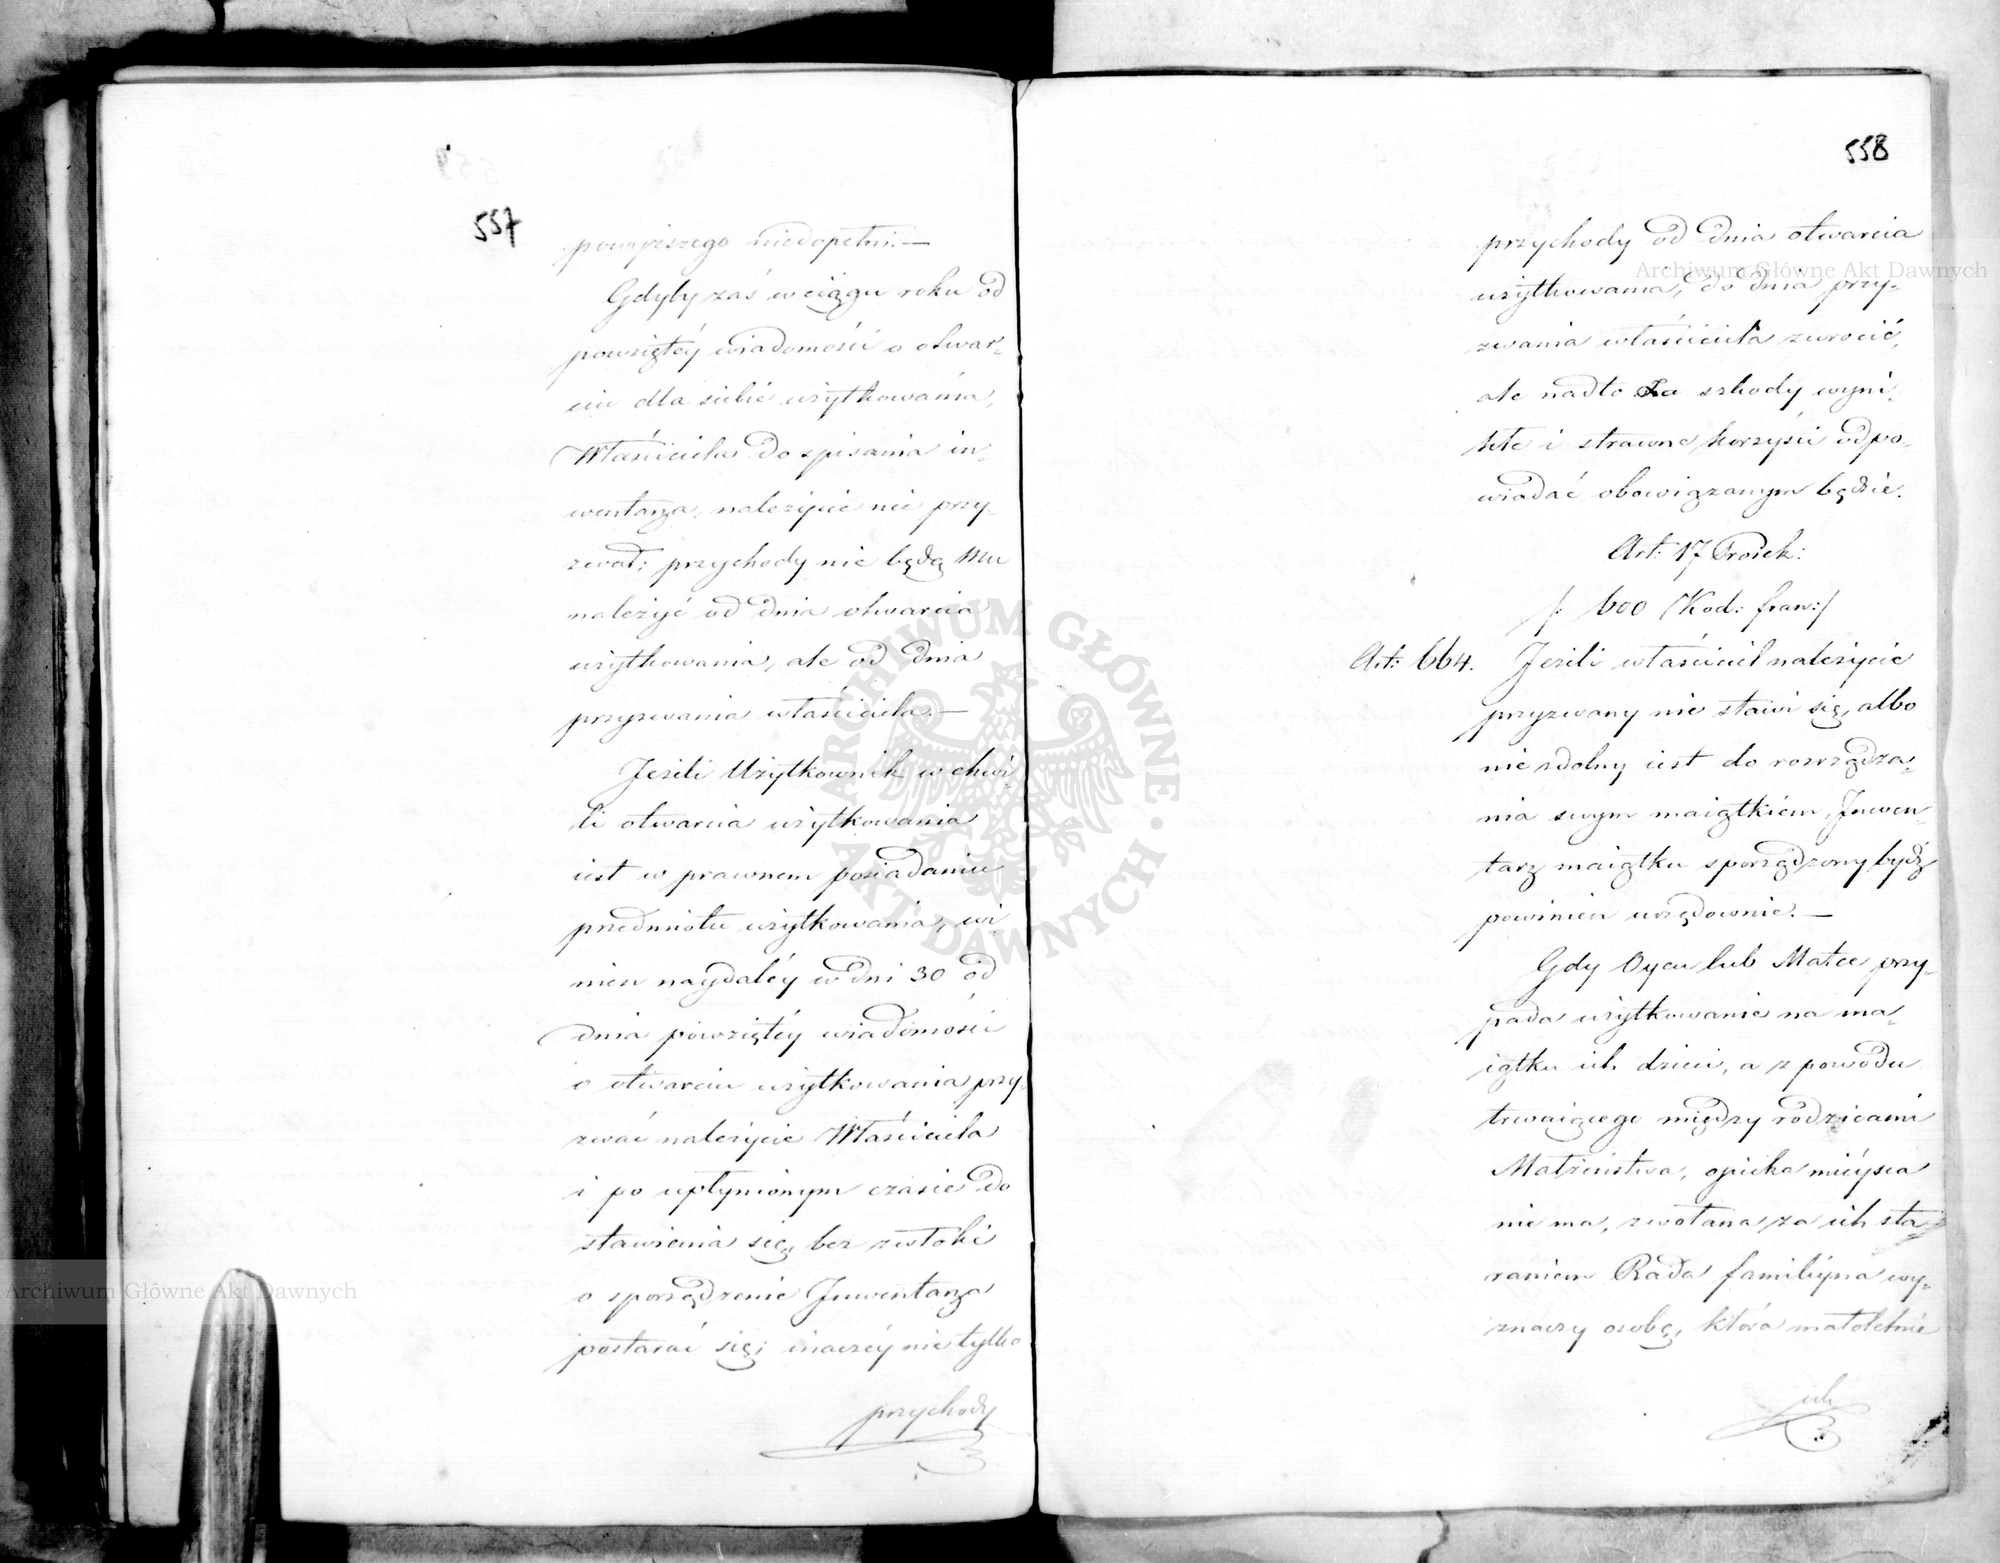 557
powyższego niedopełni. —
Gdyby zaś w ciągu roku od
powziętéy wiadomości o otwar-
ciu dla siebie użytkowania,
Właściciela do spisania in-
wentarza, należycie nie przy-
zwał; przychody nie będą mu
należyć od dnia otwarcia
użytkowania, ale od dnia
przyzwania właściciela. —
Jeżeli Użytkownik w chwi-
li otwarcia użytkowania
iest w prawnem posiadaniu
przedmiotu użytkowania, wi-
nien naydaléy w dni 30 od
dnia powziętéy wiadomości
o otwarciu użytkowania przy-
zwać należycie Właściciela
i po upłynionym czasie do
stawienia się, bez zwłoki
o sporządzenie Inwentarza
postarać się; inaczéy nie tylko
przychody
558
przychody od dnia otwarcia
użytkowania, do dnia przy-
zwania właściciela zwrocić,
ale nadto za szkody wyni-
kłe i stracone korzyści odpo-
wiadać obowiązanym będzie.
Art: 17 Prosek:
/: 600 Kod: fran:/
Art: 664. Jeżeli właściciel należycie
przyzwany nie stawi się, albo
nie zdolny iest do rozrządza-
nia swym maiątkiem, Inwen-
tarz maiątku sporządzony bydź
powinien urzędownie. —
Gdy Oycu lub Matce przy-
pada użytkowanie na ma-
iątku ich dzieci, a z powodu
trwaiącego między rodzicami
Małżeństwa, opieka mieysca
nie ma, zwołana za ich sta-
raniem Rada familiyna wy-
znaczy osobę, która małoletnie
ich
Archiwum Główne Akt Dawnych
Archiwum Główne Akt Dawnych
ARCHIWUM GŁÓWNE AKT DAWNYCH